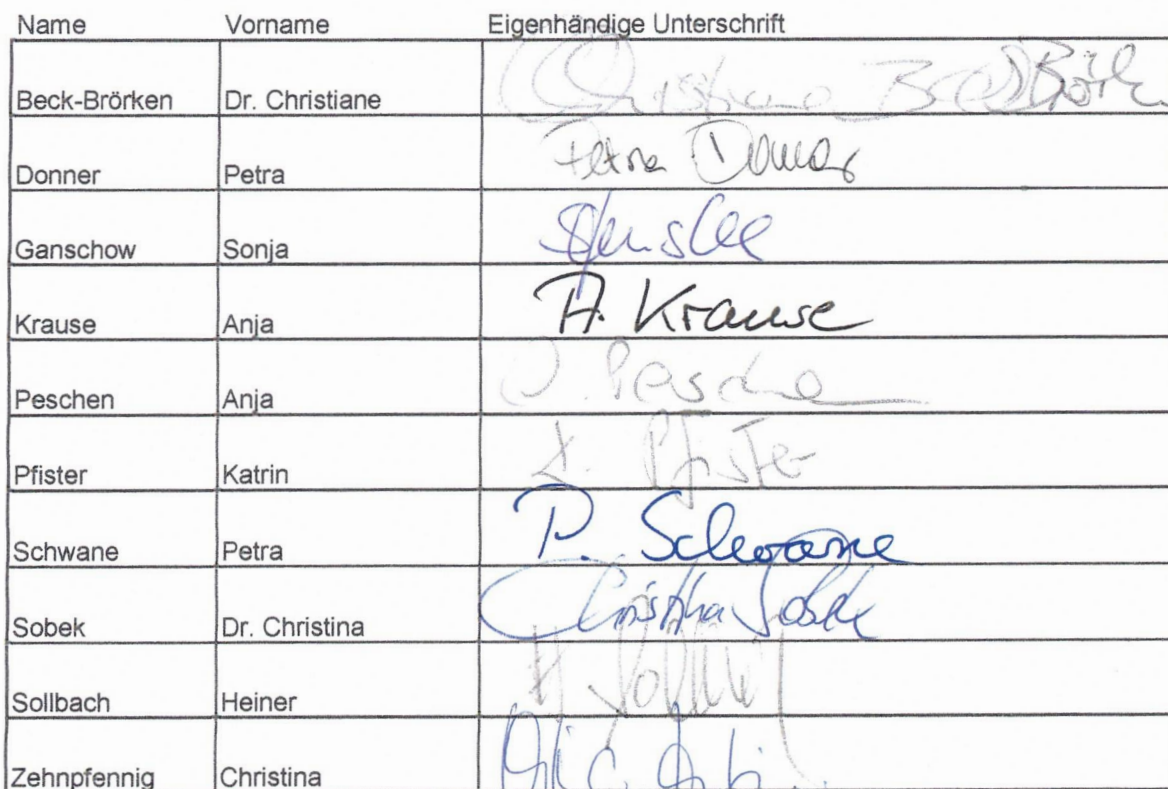 Name Vorname Eigenhändige Unterschrift
Beck-Brörken Dr. Christiane Christiane Beck-Brörken
Donner Petra Petra Donner
Ganschow Sonja
Krause Anja A. Krause
Peschen Anja Peschen
Pfister Katrin K. Pfister
Schwane Petra P. Schwane
Sobek Dr. Christina Christina Sobek
Sollbach Heiner H. Sollbach
Zehnpfennig Christina